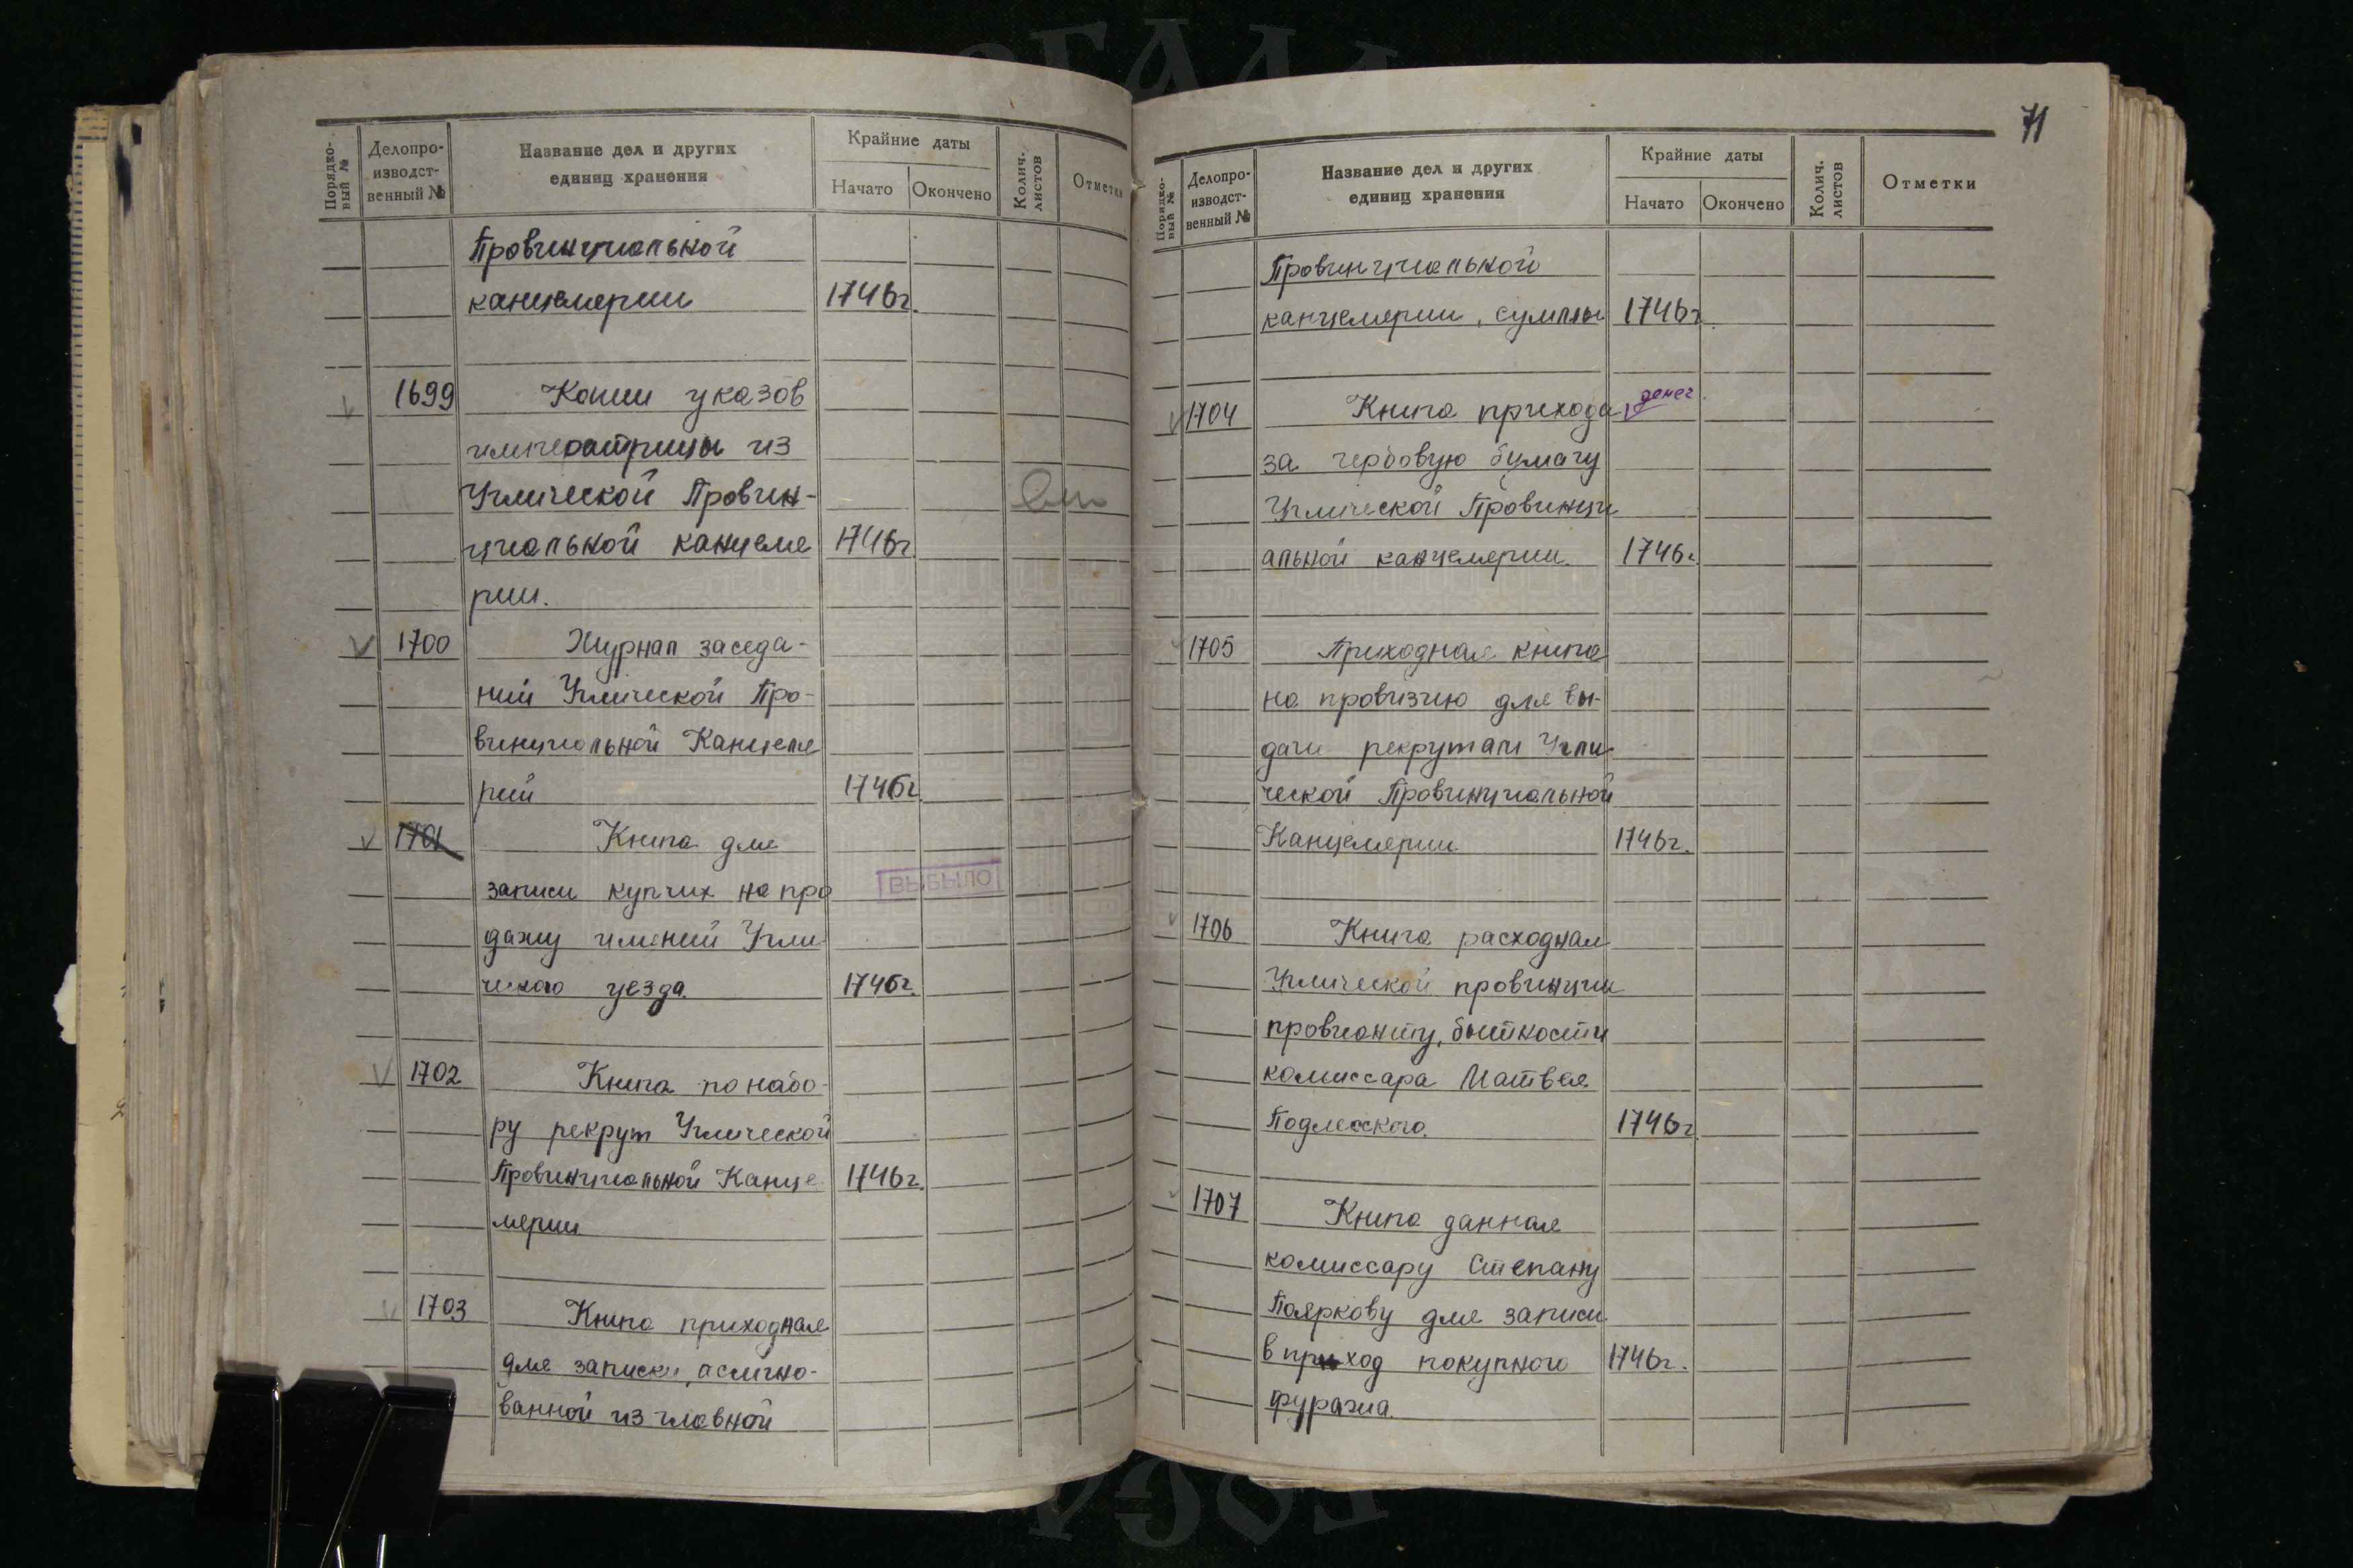 Порядко-
вый №
Делопро-
изводст-
венный №
Название дел и других
единиц хранения
Крайние даты
Начато
Окончено
Колич.
листов
Отметки
Провинциальной
канцелярии 1746г.
1699 Копии указов
императрицы из
Угличеcкой Провин-
циальной канцеля 1746г.
рии.
V 1700 Журнал заседа-
ний Угличеcкой Про-
винциальной Канцеля
рий 1746г.
V 1701 Книга для
записи купчих на про
ВЫБЫЛО
дажу имений Угли
чского уезда. 1746г.
V 1702 Книга по набо-
ру рекрут Угличеcкой
Провинциальной Канце 1746г.
лярии
V 1703 Книга приходная
для записки, асигно-
ванной из главной
71
Порядко-
вый №
Делопро-
изводст-
венный №
Название дел и других
единиц хранения
Крайние даты
Начато
Окончено
Колич.
листов
Отметки
Провинциальной
канцелярии, суммы 1746г.
V 1704 Книга прихода денег
за гербовую бумагу
Угличеcкой Провинци
альной канцелярии. 1746г.
1705 Приходная книга
на провизию для вы-
дачи рекрутам Угли-
ческой Провинциальной
Канцелярии 1746г.
1706 Книга расходная
Угличеcкой провинции
провианту, бытности
комиссара Матвея
Подлесского. 1746г.
1707 Книга данная
комиссару Степану
Пояркову для записи
в приход покупного 1746г.
фуража.